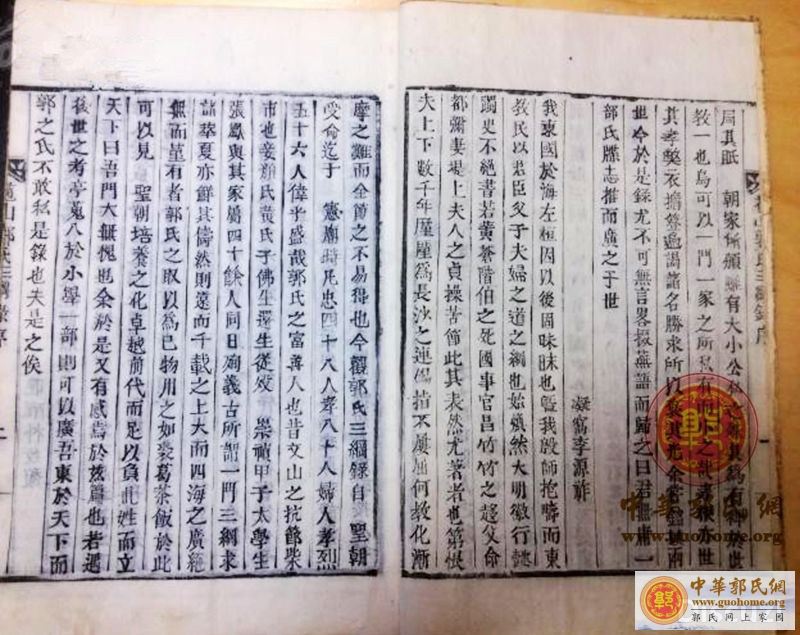 局其眂 朝家
教一也烏可以一門一家之所私有
其孝
世今於是錄尤不可無言畧掇蕪語而歸之曰君無庸一
郭氏牒志推而廣之于世
凝窩李源祚
我東國於海左桓因以後固昧昧也曁我殷師抱疇而東
教民以君臣父子夫婦之道之綱也始煥然大明徵行懿
躅史不絕書若黃蒼階伯之死國事官昌竹竹之趍父命
都彌妻堤上夫人之貞操苦節此其表然尤著者也第恨
夫上下數千年歷歷爲長沙之連偈指不屢屈何教化漸
摩之難而全節之不易得也今觀郭氏三綱錄自 聖朝
受命迄于 憲廟時凡忠四十八人孝八十八婦人孝烈
五十六人偉乎盛哉郭氏之富善人也昔文山之抗節柴
市也妾顏氏黃氏子佛生還生從效 崇禎甲子太學生
張鳳與其家屬四十餘人同日殉義古所謂一門三綱求
諸華夏亦鮮其儔然則遠而千載之上大而四海之廣絶
無而堇有者郭氏之取以爲已物用之如裘葛茶飯於此
可以見 聖朝培養之化卓越前代而足以負此姓而立
天下曰吾門大無愧也余於是又有感焉於玆篇也若遇
後世之考亭蒐入於小學一部則可以廣吾東於天下而
郭之氏不敢私是錄也夫是之俟
郭氏三綱錄序
中華郭氏網
www.guohome.org
中華郭氏網
www.guohome.org
郭氏网上家园